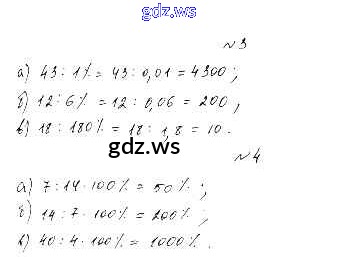 gdz.ws
№3
а) 43 : 1% = 43 : 0,01 = 4300 ;
б) 12 : 6% = 12 : 0,06 = 200 ,
в) 18 : 180% = 18 : 1,8 = 10 .
gdz.ws
№4
а) 7 : 14 · 100% = 50% ;
б) 14 : 7 · 100% = 200% ;
в) 40 : 4 · 100% = 1000% .